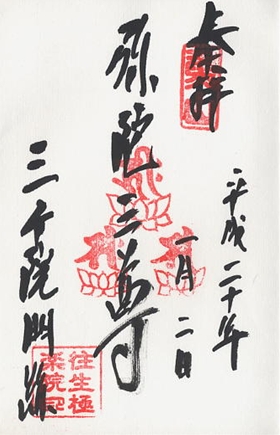 奉拝
平成二十年
一月二日
弥陀三尊
三千院門跡
往生極
楽院印